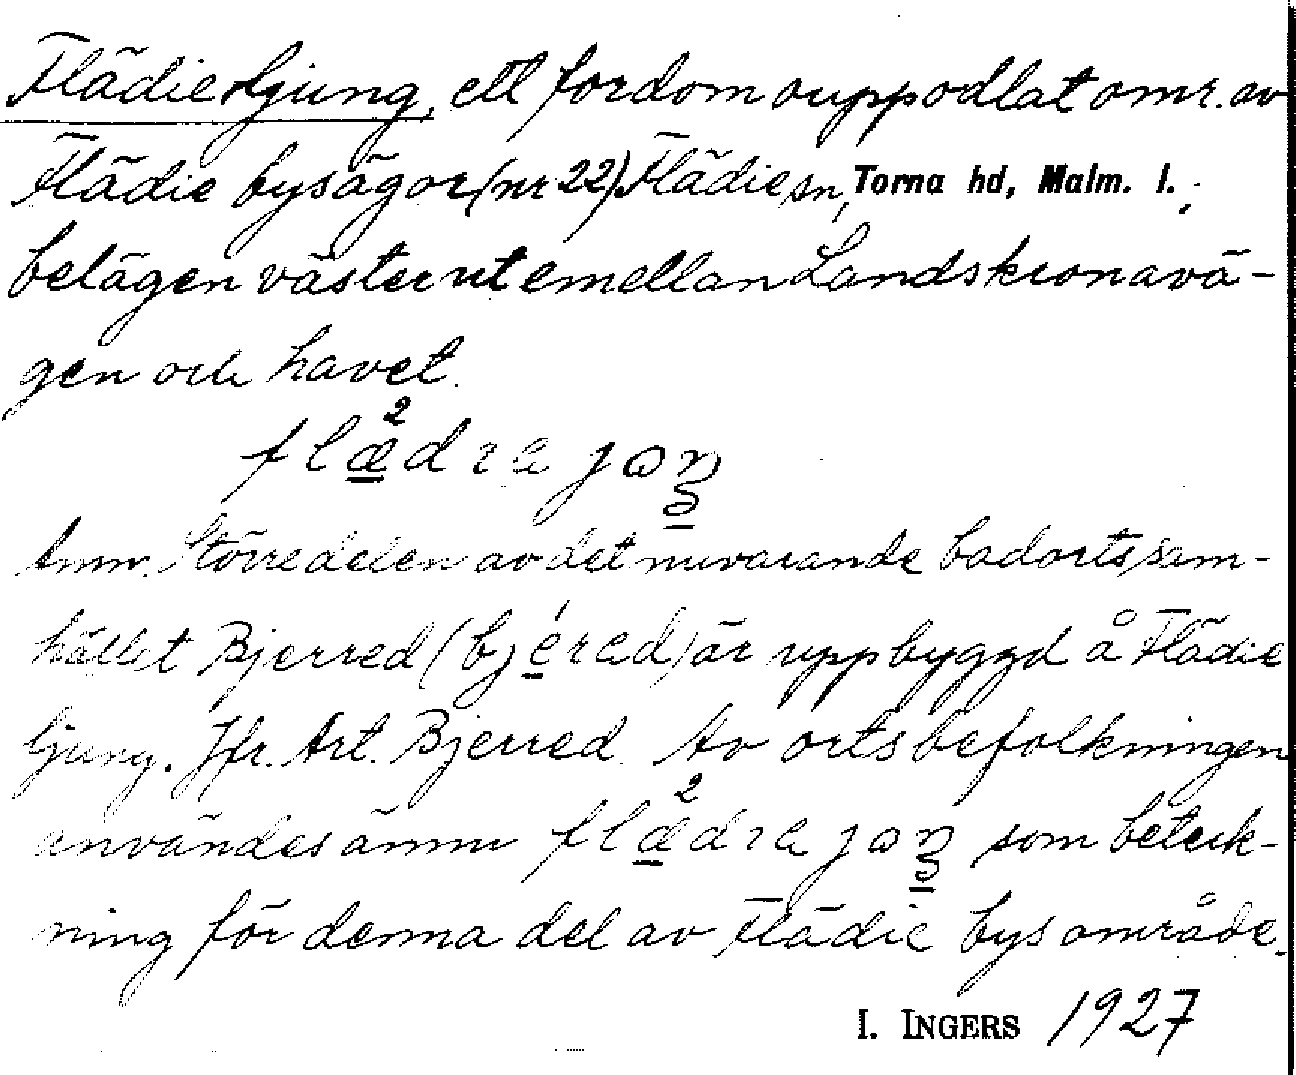 Flädie ljung, ett fordom ouppodlat omr. av
Flädie bys ägor (nr 22) Flädie sn, Torna hd, Malm. l.,
belägen västerut emellan Landskronavä-
gen och havet.
flædrajoŋ
Anm. Större delen av det nuvarande badortssam-
hället Bjerred (bjerad) är uppbyggd å Flädie
ljung. Jfr. Art. Bjerred. Av ortsbefolkningen
användes ännu flædrajoŋ som beteck-
ning för denna del av Flädie bys område.
I. INGERS 1927